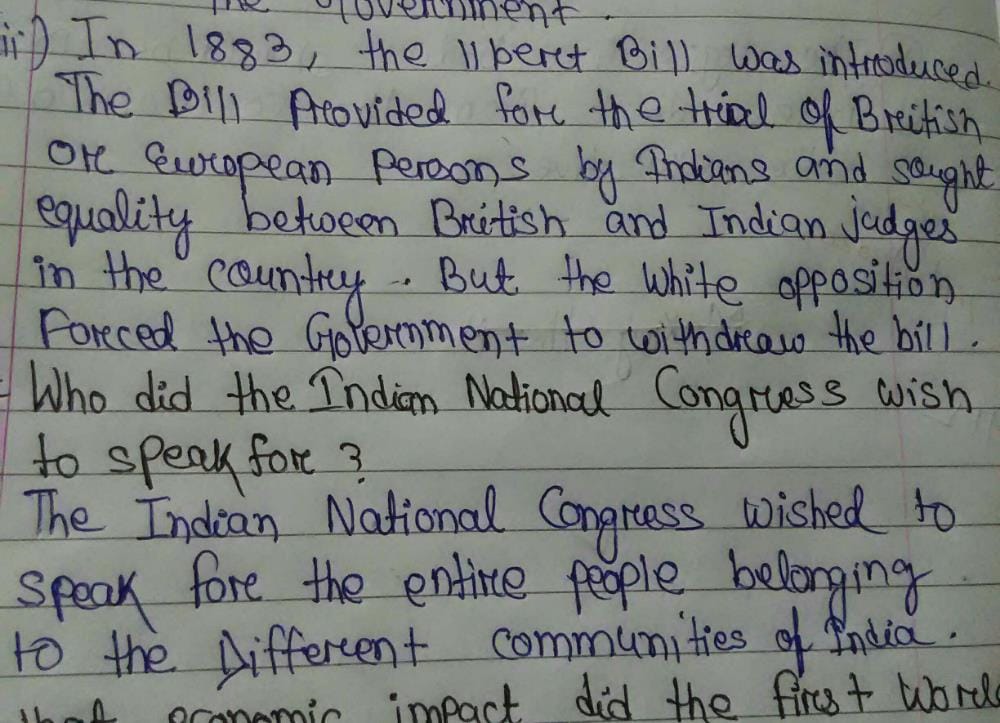 the Government.
iii) In 1883, the Ilberet Bill was introduced.
The Bill Provided fore the trial of British
Ore European Persons by Indians and sought
equality between British and Indian judges
in the country. But the White opposition
Forced the Government to withdraw the bill.
Who did the Indian National Congress wish
to speak fore ?
The Indian National Congress wished to
speak fore the entire people belonging
to the Different communities of India.
economic impact did the first World